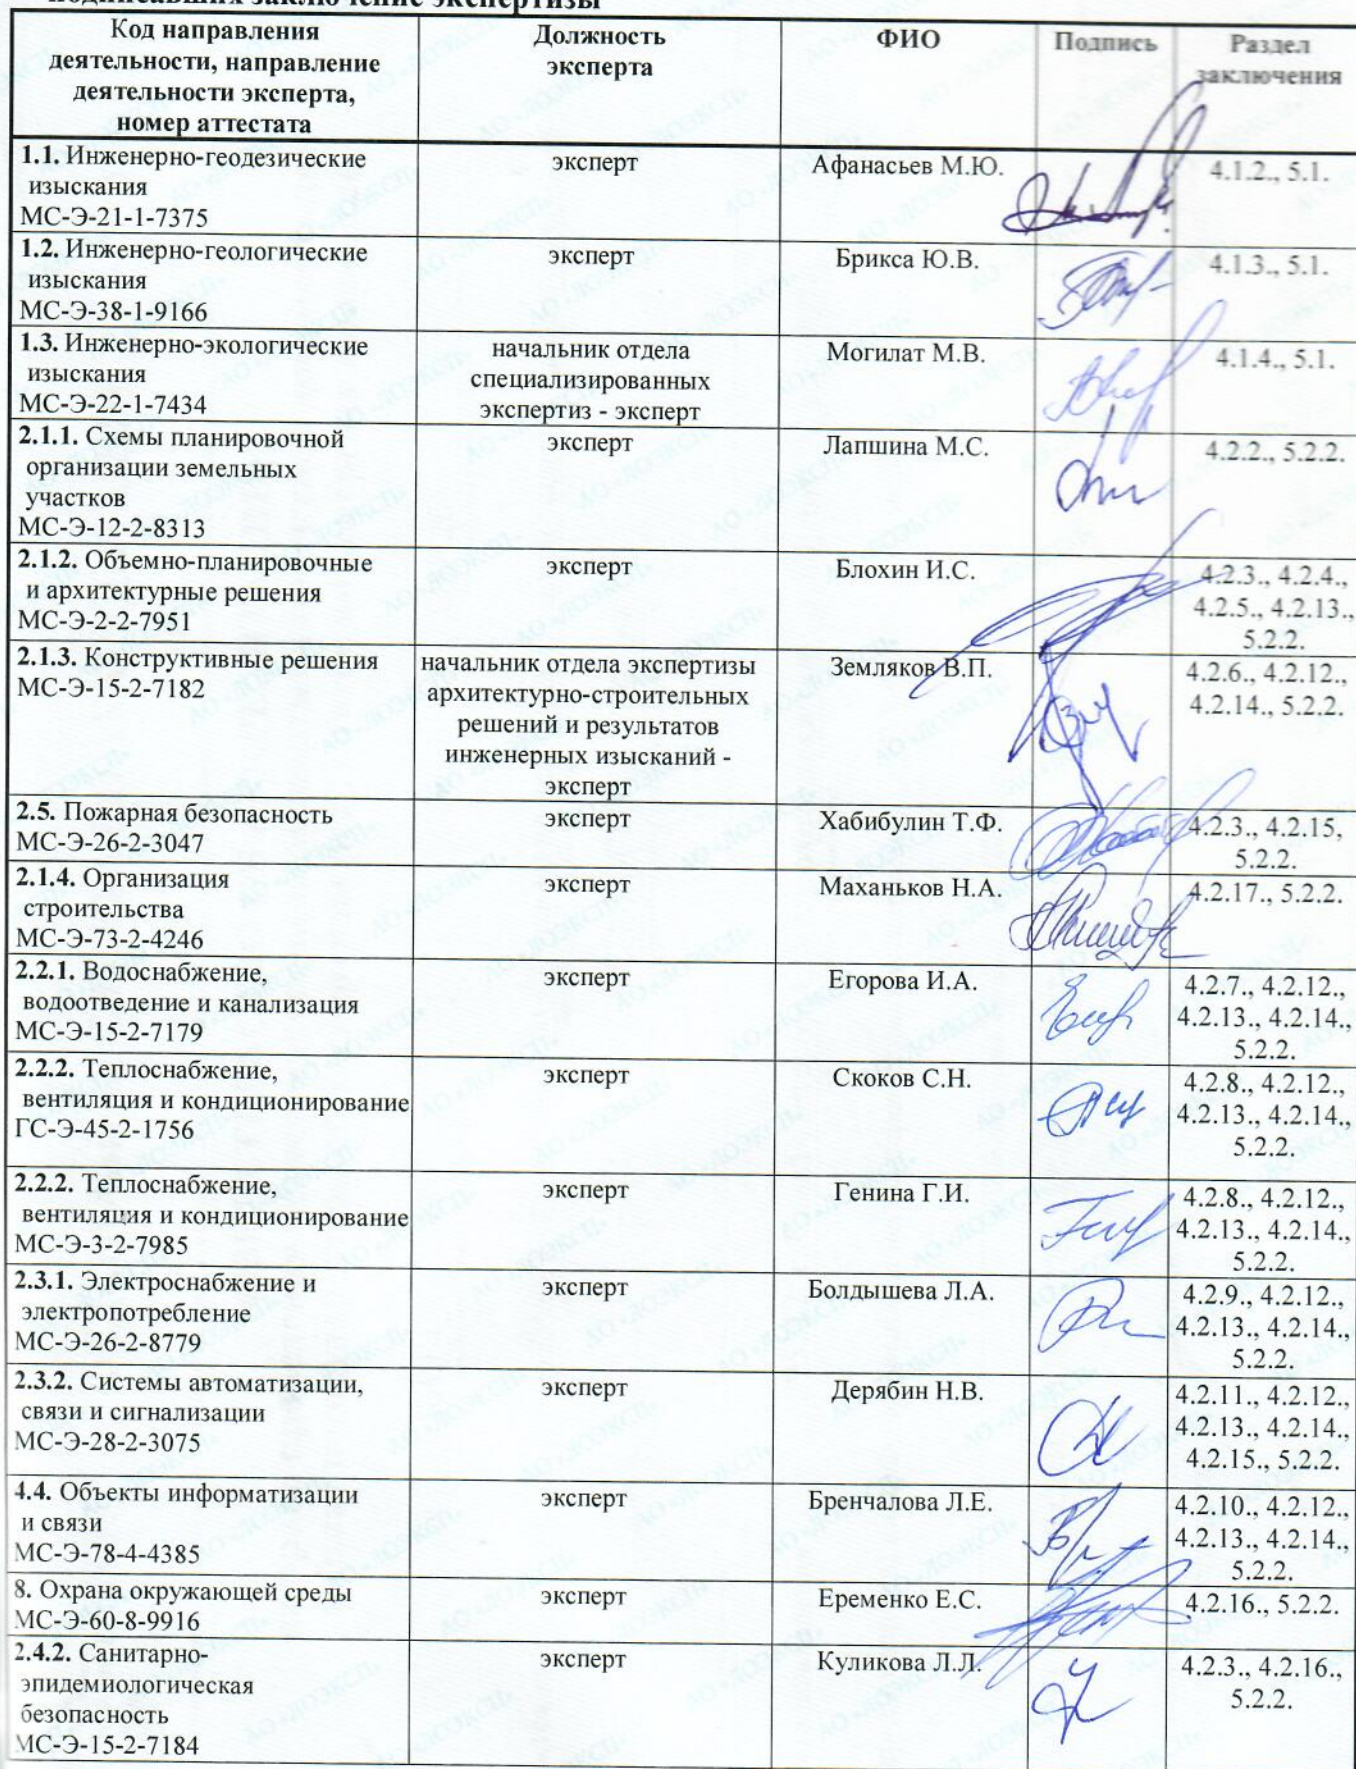 подписавших заключение экспертизы
Код направления
деятельности, направление
деятельности эксперта,
номер аттестата
Должность
эксперта
ФИО
Подпись
Раздел
заключения
1.1. Инженерно-геодезические
изыскания
МС-Э-21-1-7375
эксперт
Афанасьев М.Ю.
4.1.2., 5.1.
1.2. Инженерно-геологические
изыскания
МС-Э-38-1-9166
эксперт
Брикса Ю.В.
4.1.3., 5.1.
1.3. Инженерно-экологические
изыскания
МС-Э-22-1-7434
начальник отдела
специализированных
экспертиз - эксперт
Могилат М.В.
4.1.4., 5.1.
2.1.1. Схемы планировочной
организации земельных
участков
МС-Э-12-2-8313
эксперт
Лапшина М.С.
4.2.2., 5.2.2.
2.1.2. Объемно-планировочные
и архитектурные решения
МС-Э-2-2-7951
эксперт
Блохин И.С.
4.2.3., 4.2.4.,
4.2.5., 4.2.13.,
5.2.2.
2.1.3. Конструктивные решения
МС-Э-15-2-7182
начальник отдела экспертизы
архитектурно-строительных
решений и результатов
инженерных изысканий -
эксперт
Земляков В.П.
4.2.6., 4.2.12.,
4.2.14., 5.2.2.
2.5. Пожарная безопасность
МС-Э-26-2-3047
эксперт
Хабибулин Т.Ф.
4.2.3., 4.2.15,
5.2.2.
2.1.4. Организация
строительства
МС-Э-73-2-4246
эксперт
Маханьков Н.А.
4.2.17., 5.2.2.
2.2.1. Водоснабжение,
водоотведение и канализация
МС-Э-15-2-7179
эксперт
Егорова И.А.
4.2.7., 4.2.12.,
4.2.13., 4.2.14.,
5.2.2.
2.2.2. Теплоснабжение,
вентиляция и кондиционирование
ГС-Э-45-2-1756
эксперт
Скоков С.Н.
4.2.8., 4.2.12.,
4.2.13., 4.2.14.,
5.2.2.
2.2.2. Теплоснабжение,
вентиляция и кондиционирование
МС-Э-3-2-7985
эксперт
Генина Г.И.
4.2.8., 4.2.12.,
4.2.13., 4.2.14.,
5.2.2.
2.3.1. Электроснабжение и
электропотребление
МС-Э-26-2-8779
эксперт
Болдышева Л.А.
4.2.9., 4.2.12.,
4.2.13., 4.2.14.,
5.2.2.
2.3.2. Системы автоматизации,
связи и сигнализации
МС-Э-28-2-3075
эксперт
Дерябин Н.В.
4.2.11., 4.2.12.,
4.2.13., 4.2.14.,
4.2.15., 5.2.2.
4.4. Объекты информатизации
и связи
МС-Э-78-4-4385
эксперт
Бренчалова Л.Е.
4.2.10., 4.2.12.,
4.2.13., 4.2.14.,
5.2.2.
8. Охрана окружающей среды
МС-Э-60-8-9916
эксперт
Еременко Е.С.
4.2.16., 5.2.2.
2.4.2. Санитарно-
эпидемиологическая
безопасность
МС-Э-15-2-7184
эксперт
Куликова Л.Л.
4.2.3., 4.2.16.,
5.2.2.